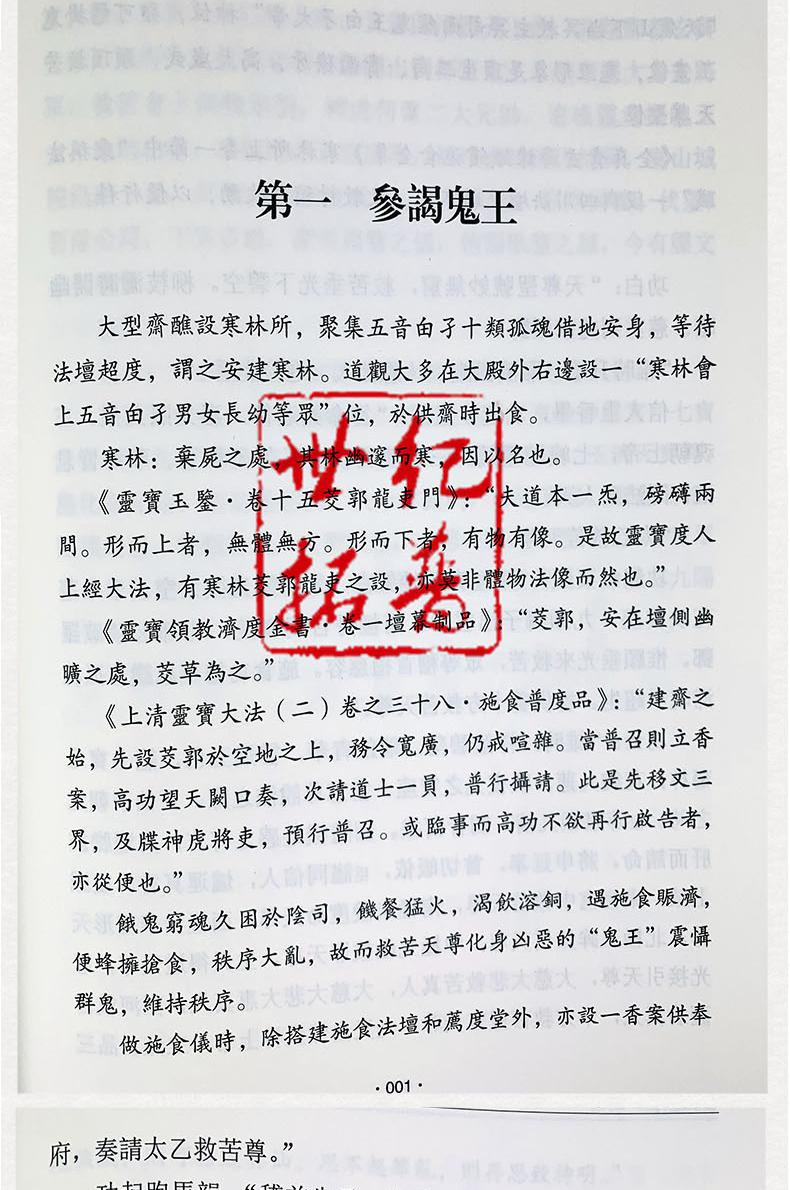 第一　參謁鬼王
大型齋醮設寒林所，聚集五音白孑十類孤魂借地安身，等待
法壇超度，謂之安建寒林。道觀大多在大殿外右邊設一“寒林會
上五音白孑男女長幼等眾”位，於供齋時出食。
寒林：棄屍之處，其林幽邃而寒，因以名也。
《靈寶玉鑒·卷十五茭郭龍吏門》：“夫道本一炁，磅礡兩
間。形而上者，無體無方。形而下者，有物有像。是故靈寶度人
上經大法，有寒林茭郭龍吏之設，亦莫非體物法像而然也。”
《靈寶領教濟度金書·卷一壇幕制品》：“茭郭，安在壇側幽
曠之處，茭草為之。”
《上清靈寶大法（二）卷之三十八·施食普度品》：“建齋之
始，先設茭郭於空地之上，務令寬廣，仍戒喧雜。當普召則立香
案，高功望天闕口奏，次請道士一員，普行攝請。此是先移文三
界，及牒神虎將吏，預行普召。或臨事而高功不欲再行啟告者，
亦從便也。”
餓鬼窮魂久困於陰司，饑餐猛火，渴飲溶銅，遇施食賑濟，
便蜂擁搶食，秩序大亂，故而救苦天尊化身凶惡的“鬼王”震懾
群鬼，維持秩序。
做施食儀時，除搭建施食法壇和薦度堂外，亦設一香案供奉
·001·
世紀
拓普
府，奏請太乙救苦尊。”